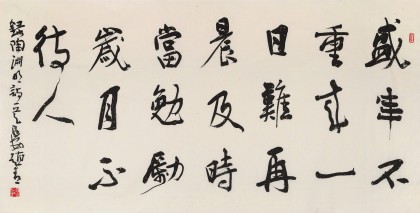 盛年不
重来一
日難再
晨及時
當勉勵
歲月不
待人
録陶渊明詩